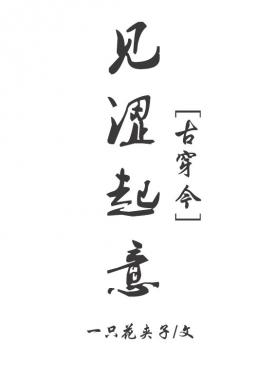 见涩起意
[古穿今]
一只花夹子/文